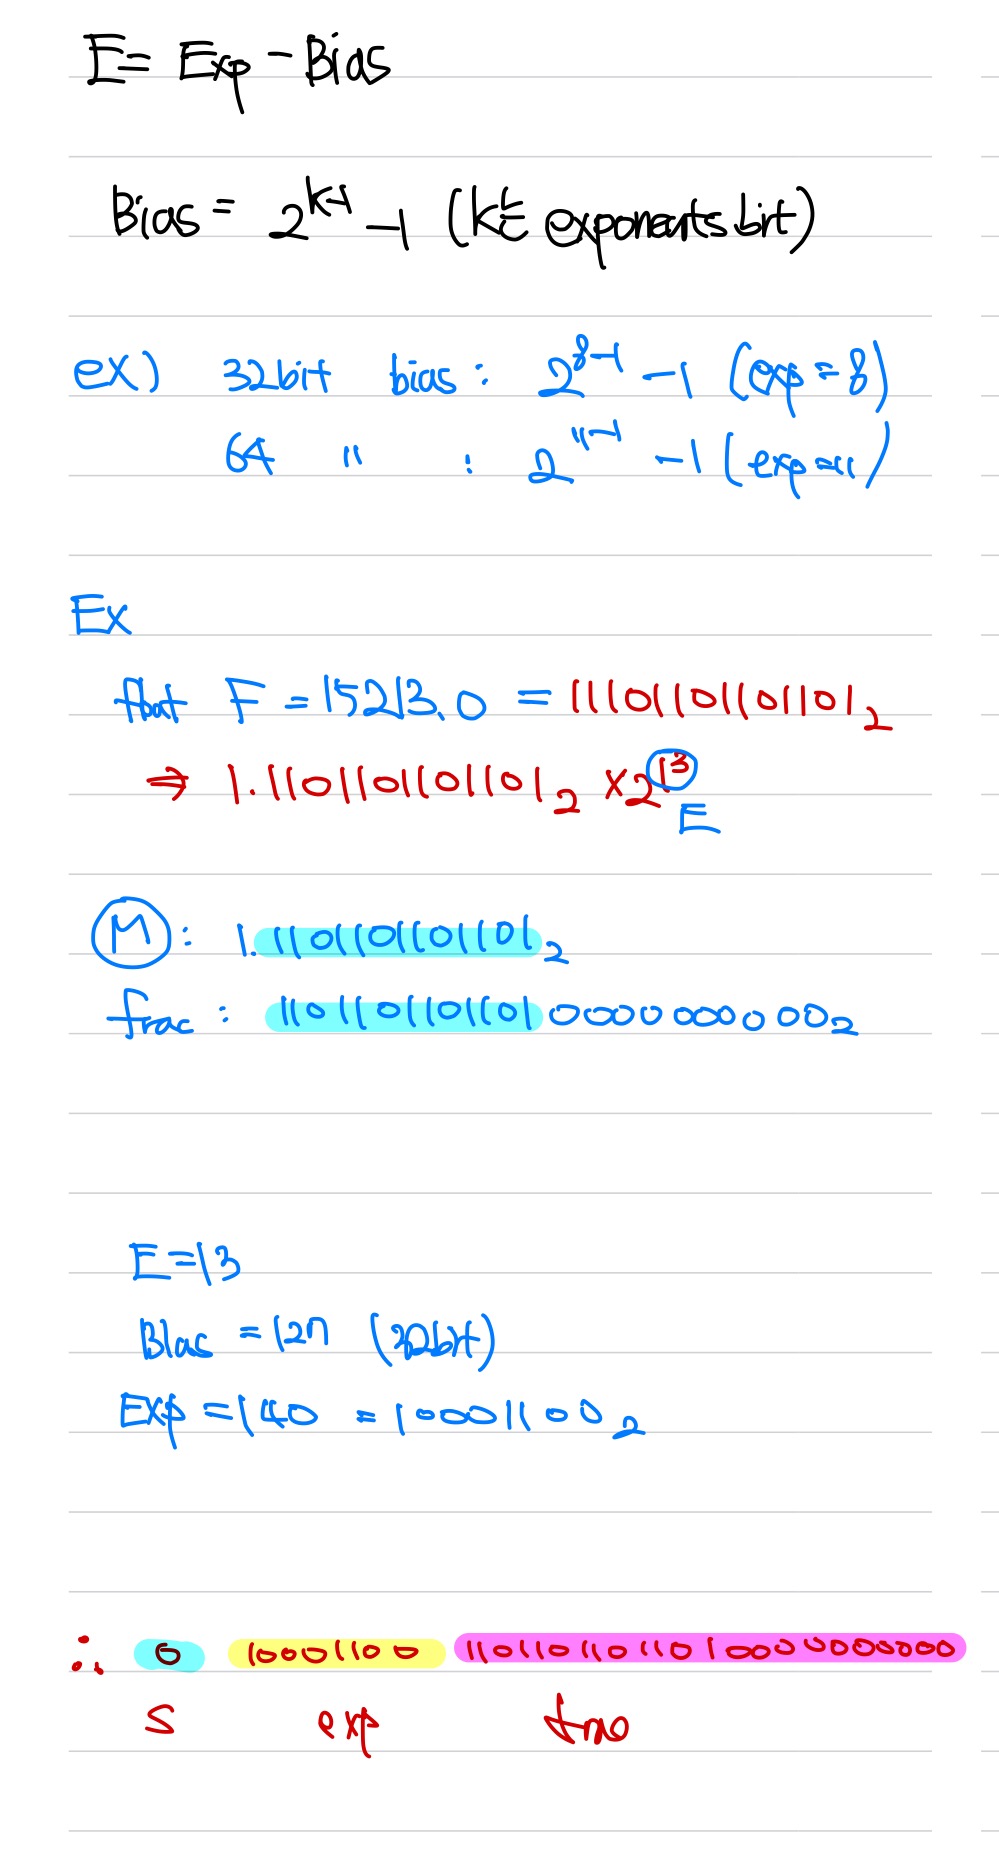 E = Exp - Bias
Bias = 2^{k-1} - 1 (k는 exponents bit)
ex) 32bit bias : 2^{8-1} - 1 (exp = 8)
64 〃 : 2^{11-1} - 1 (exp = 11)
Ex
float F = 15213.0 = 11101101101101₂
⇒ 1.1101101101101₂ × 2^{13}
E
M : 1.1101101101101₂
frac : 11011011011010000000000₂
E = 13
Bias = 127 (32bit)
Exp = 140 = 10001100₂
∴ 0 10001100 11011011011010000000000
S exp frac